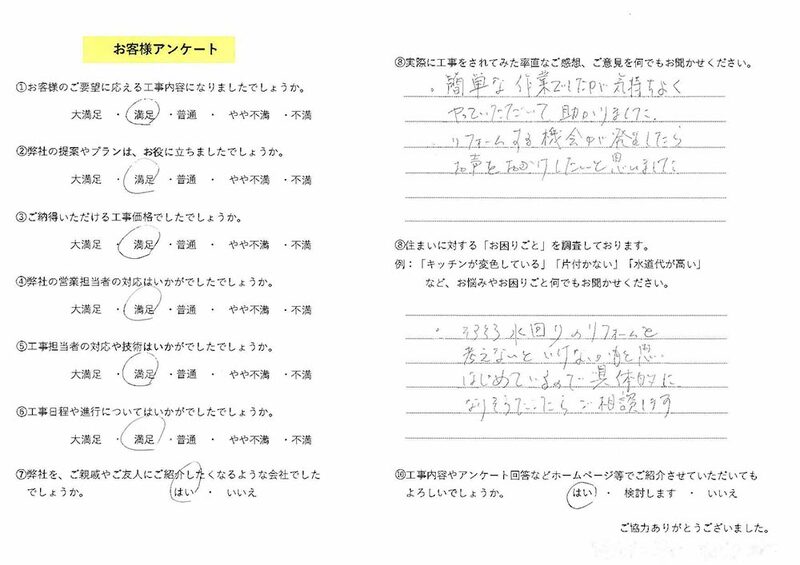 お客様アンケート
①お客様のご要望に応える工事内容になりましたでしょうか。
大満足 ・ 満足 ・普通 ・ やや不満 ・不満
②弊社の提案やプランは、お役に立ちましたでしょうか。
大満足 ・ 満足 ・普通 ・ やや不満 ・不満
③ご納得いただける工事価格でしたでしょうか。
大満足 ・ 満足 ・普通 ・ やや不満 ・不満
④弊社の営業担当者の対応はいかがでしたでしょうか。
大満足 ・ 満足 ・普通 ・ やや不満 ・不満
⑤工事担当者の対応や技術はいかがでしたでしょうか。
大満足 ・ 満足 ・普通 ・ やや不満 ・不満
⑥工事日程や進行についてはいかがでしたでしょうか。
大満足 ・ 満足 ・普通 ・ やや不満 ・不満
⑦弊社を、ご親戚やご友人にご紹介したくなるような会社でした
でしょうか。 はい ・ いいえ
⑧実際に工事をされてみた率直なご感想、ご意見を何でもお聞かせください。
・簡単な作業でしたが気持ちよく
やっていただいて助かりました。
リフォームする機会が発生したら
お声をおかけしたいと思いました
⑧住まいに対する「お困りごと」を調査しております。
例：「キッチンが変色している」「片付かない」「水道代が高い」
など、お悩みやお困りごと何でもお聞かせください。
・そろそろ水回りのリフォームを
考えないといけないと思い
はじめているので具体的に
なりそうだったらご相談します
⑩工事内容やアンケート回答などホームページ等でご紹介させていただいても
よろしいでしょうか。 はい ・ 検討します ・ いいえ
ご協力ありがとうございました。